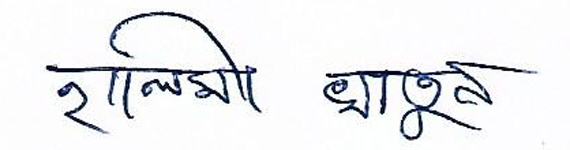 হালিমা খাতুন